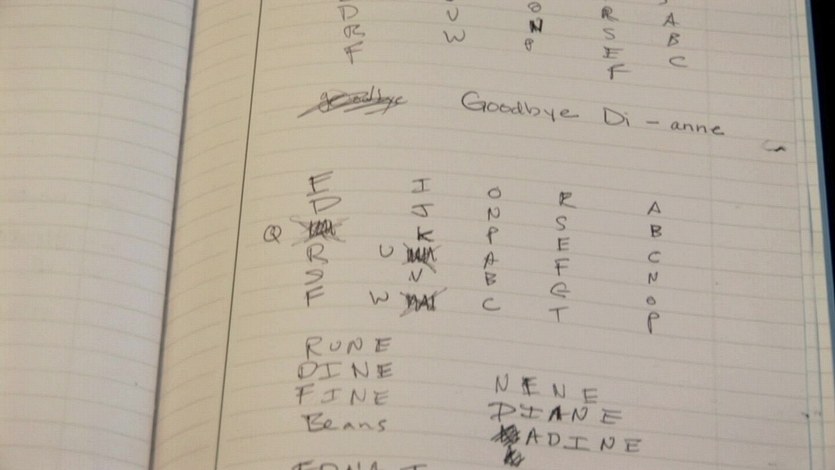 D U O R A
R W N S B
F 8 E C
F
Goodbye Goodbye Di-anne
E I O R A
D J N S B
Q K P E C
R U A F N
S V B G O
F W C T P
RUNE
DINE
FINE NENE
Beans DIANE
ADINE